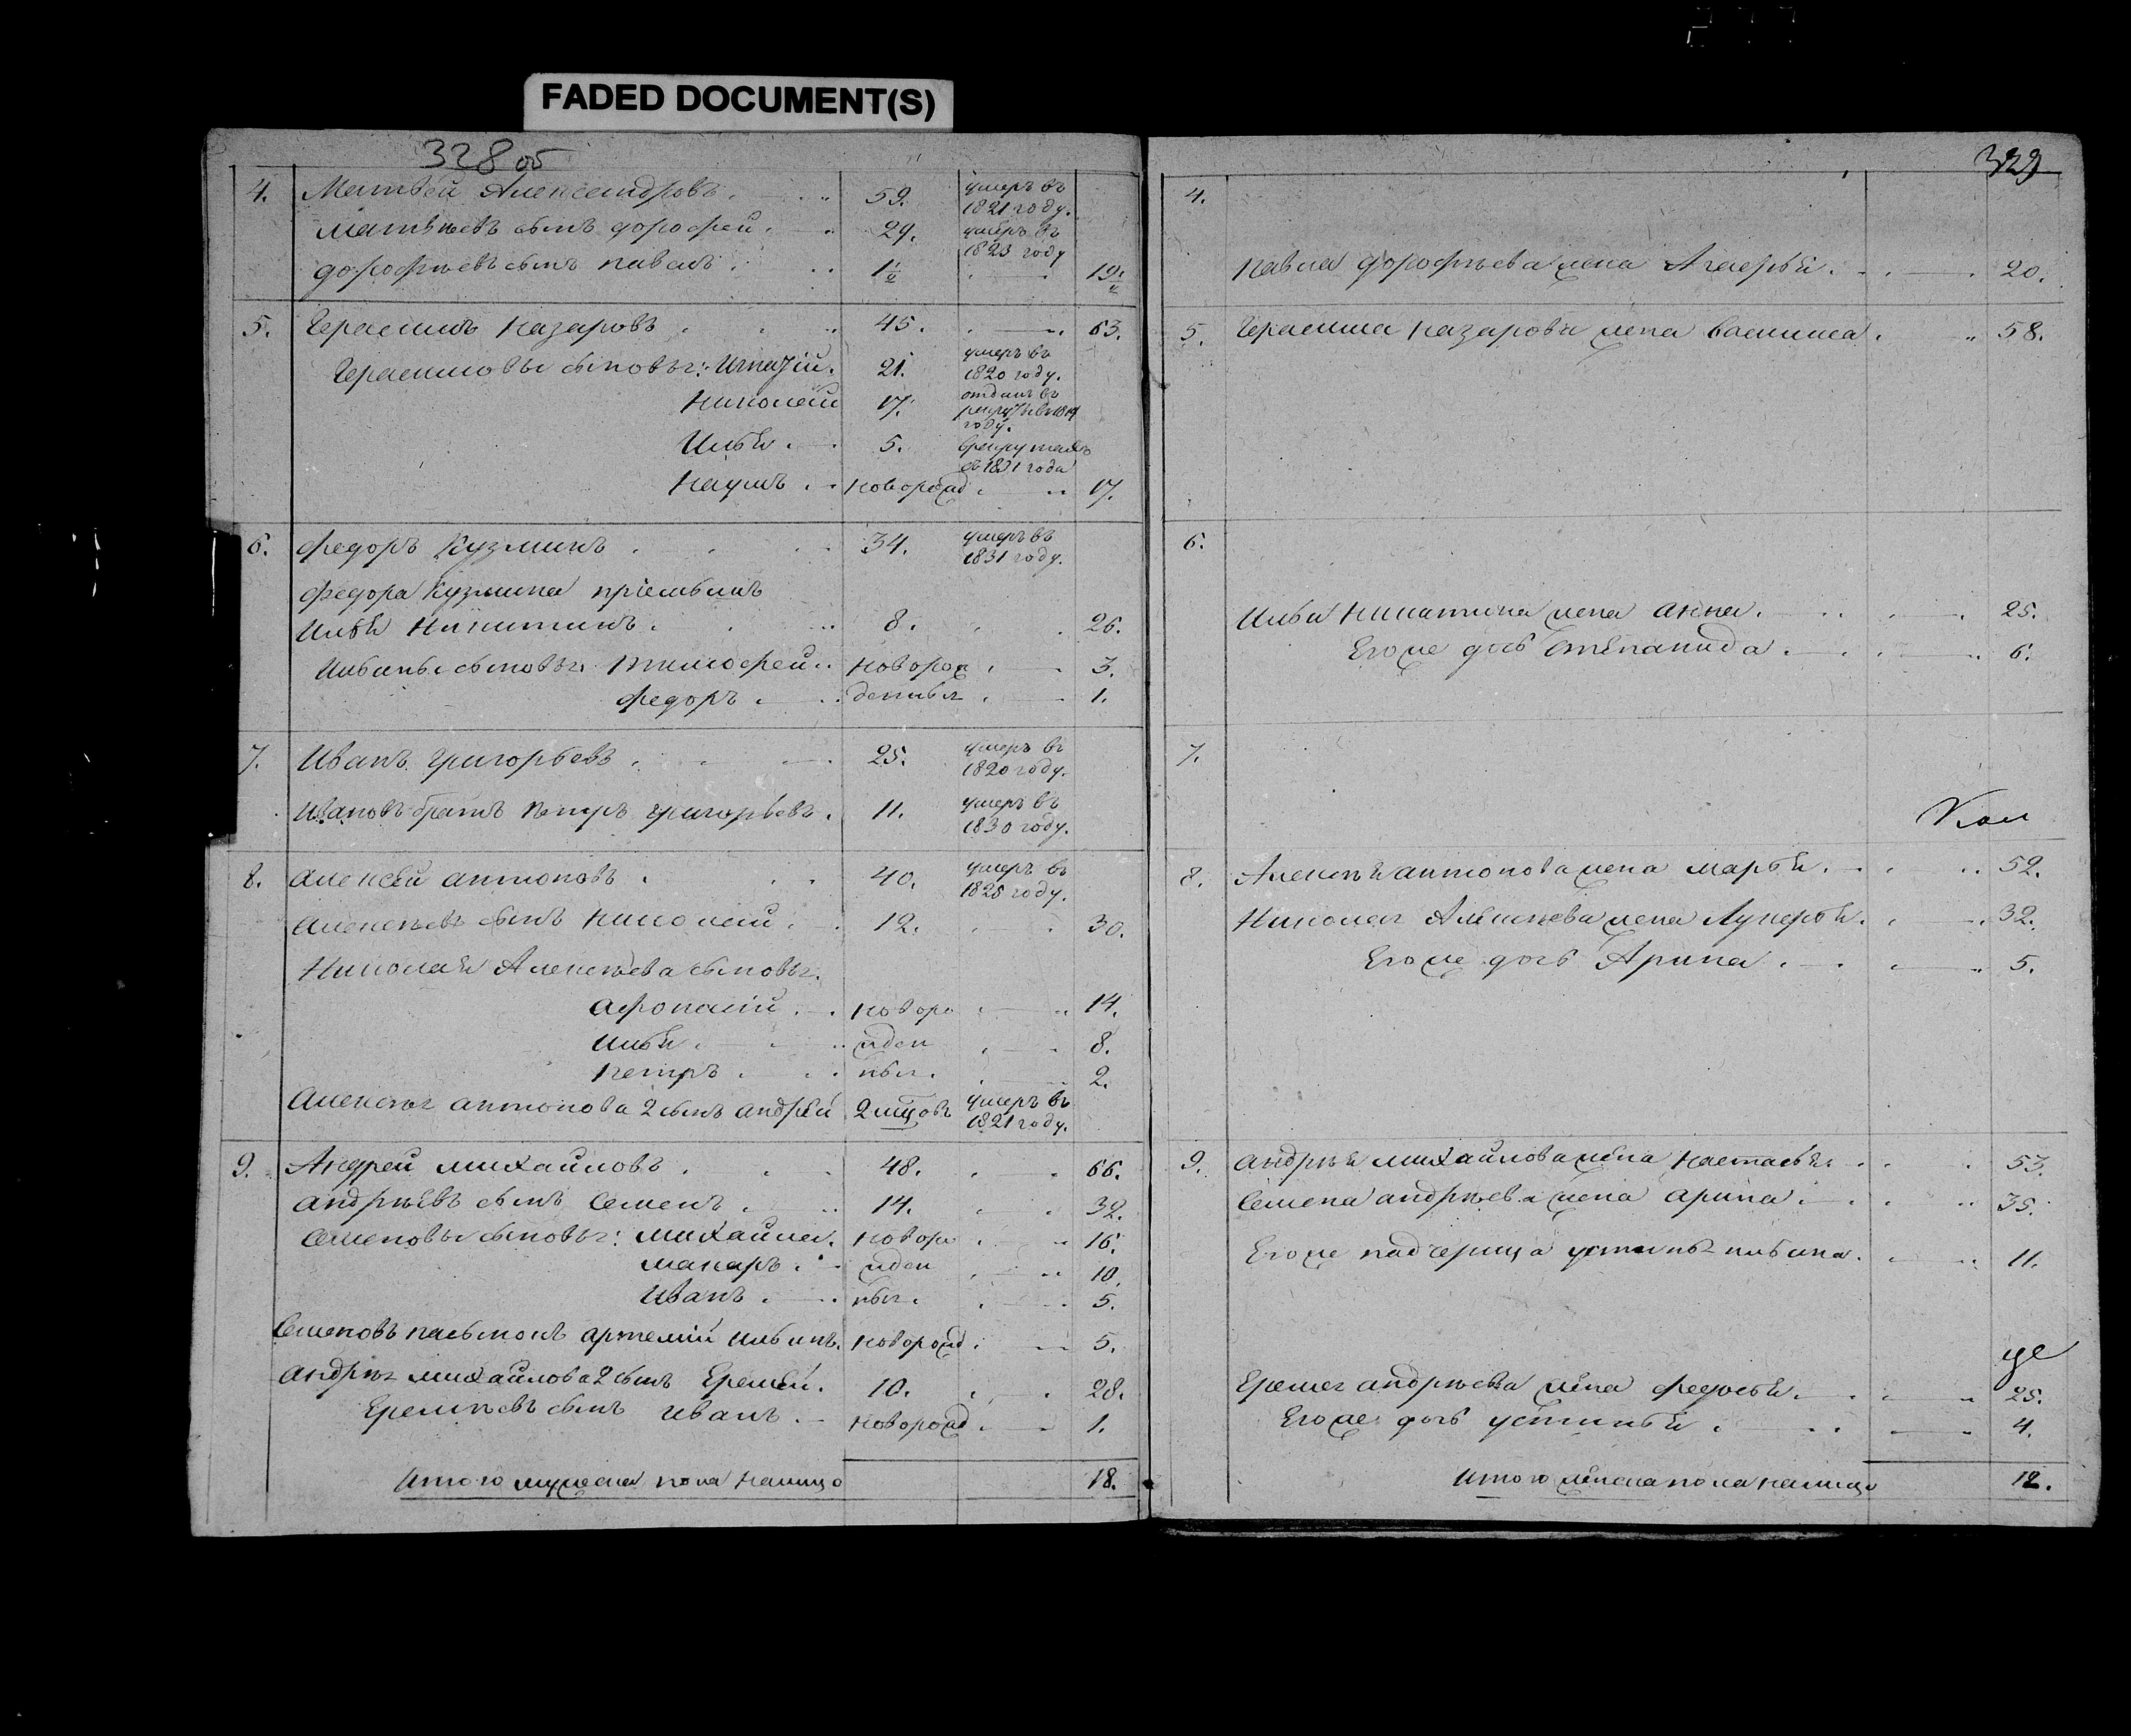 FADED DOCUMENT(S)
328 об
4. Матвей Александровъ. 59. умеръ въ 1821 году.
Матвѣевъ сынъ дорофей. 29. умеръ въ 1823 году
дорофѣевъ сынъ павелъ. 1½ 19½
5. Герасимъ Назаровъ 45. 63.
Герасимовы сыновья: Игнатій. 21. умеръ въ 1820 году.
Николай 17. отданъ въ рекруты въ году.
Илья 5. в рекрутахъ съ 1831 года
Наумъ новорожд 17.
6. Федоръ Кузминъ 34. умеръ въ 1831 году.
Федора Кузмина пріемышъ
Илья Никитинъ. 8. 26.
Ильины сыновья. тимофей новорож 3.
Федоръ денныя 1.
7. Иванъ Григорьевъ 25. умеръ въ 1820 году.
Ивановъ братъ Петръ Григорьевъ. 11. умеръ въ 1830 году.
8. Алексей антоновъ 40. умеръ въ 1828 году.
Алексѣевъ сынъ Николай 12. 30.
Николая Алексѣева сыновья.
Афонасій новоро 14.
Илья жден 8.
Петръ ныя. 2.
Алексѣя антонова 2 сынъ андрей 2 мцовъ умеръ въ 1821 году.
9. Андрей михайловъ 48. 66.
андрѣевъ сынъ Семенъ 14. 32.
Семеновы сыновья: михайла. новоро 16.
макаръ жден 10.
Иванъ ныя. 5.
Семеновъ пасынокъ артемій ильинъ. новорожд 5.
андрѣя михайлова 2 сынъ Еремей. 10. 28.
Еремѣевъ сынъ иванъ новорожд 1.
Итого мужеска пола налицо 18.
329
4.
Павла дорофѣева жена 20.
5. Герасима Назарова жена василиса 58.
6.
Ильи Никитина жена анна. 25.
Его же дочь Степанида 6.
7.
8. Алексѣя антонова жена марья 52.
Николая Алексѣева жена Лукерья 32.
Его же дочь Арина 5.
9. андрѣя михайлова жена настасья 53.
Семена андрѣева жена арина 35.
Его же падчерица устинья ильина. 11.
Еремея андрѣева жена федосья 25.
Его же дочь устинья 4.
Итого женска пола налицо 12.